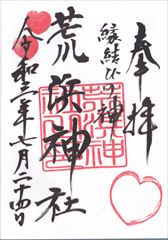 奉拝
縁結びの神
荒浜神社
令和三年七月二十四日